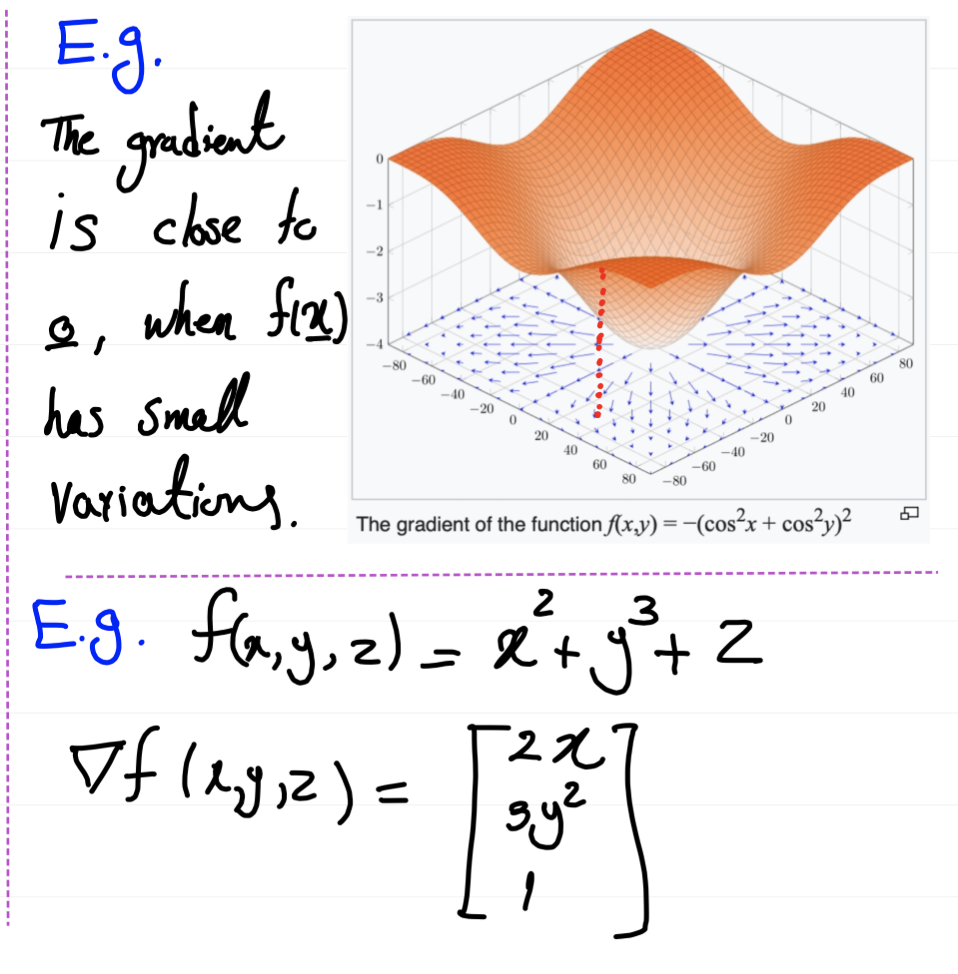 E.g.
The gradient
is close to
0, when f(x)
has small
variations.
0
−1
−2
−3
−4
−80
−60
−40
−20
0
20
40
60
80
−80
−60
−40
−20
0
20
40
60
80
The gradient of the function f(x,y) = −(cos²x + cos²y)²
E.g. f(x,y,z) = x² + y³ + z
∇f(x,y,z) = [2x
3y²
1]